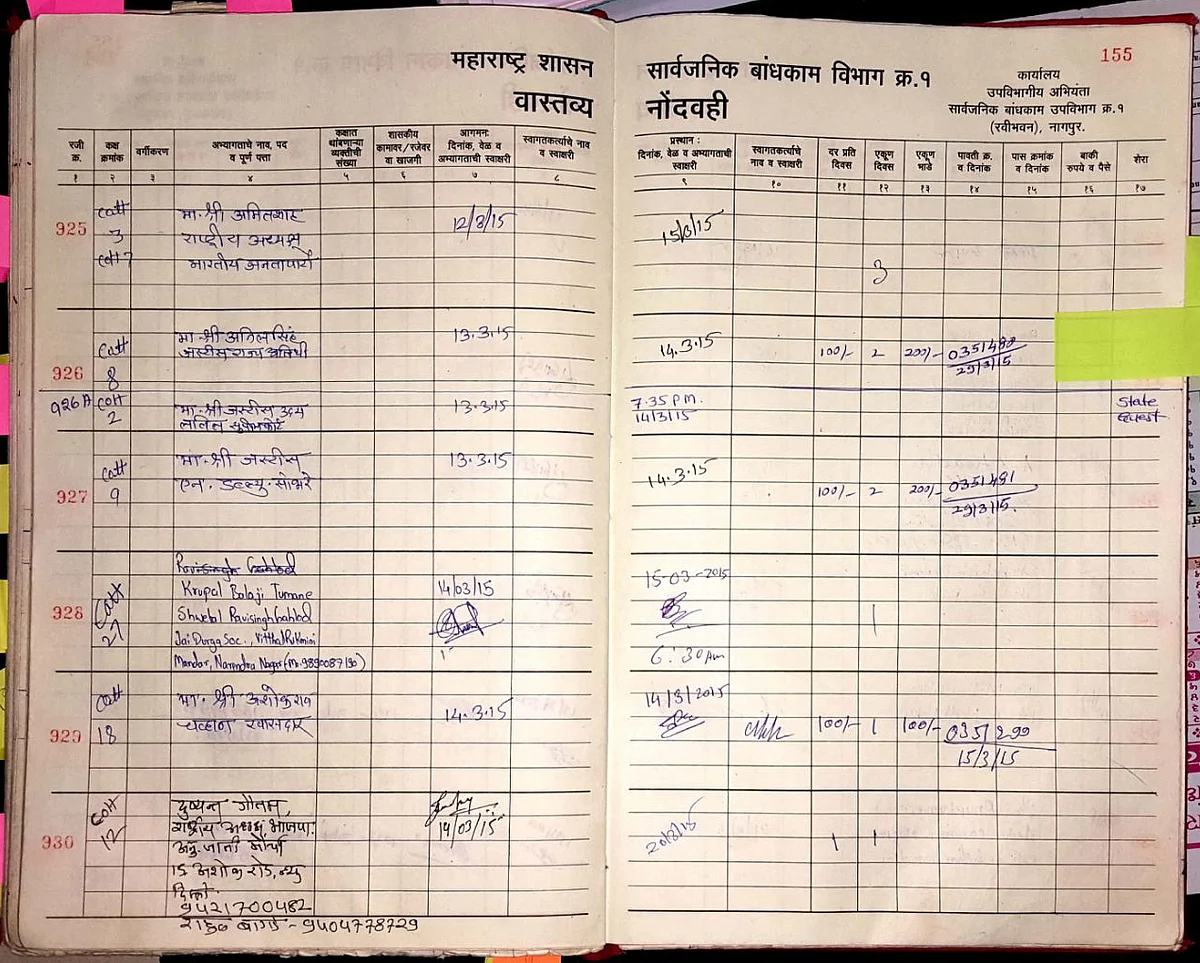 155
महाराष्ट्र शासन
वास्तव्य
सार्वजनिक बांधकाम विभाग क्र.१
नोंदवही
कार्यालय
उपविभागीय अभियंता
सार्वजनिक बांधकाम उपविभाग क्र.१
(रवीभवन), नागपुर.
रजी क्र.
कक्ष क्रमांक
वर्गीकरण
अभ्यागताचे नाव, पद व पूर्ण पत्ता
कक्षात थांबणाऱ्या व्यक्तीची संख्या
शासकीय कामावर/रजेवर वा खाजगी
आगमन: दिनांक, वेळ व अभ्यागताची स्वाक्षरी
स्वागतकर्त्याचे नाव व स्वाक्षरी
प्रस्थान : दिनांक, वेळ व अभ्यागताची स्वाक्षरी
स्वागतकर्त्याचे नाव व स्वाक्षरी
दर प्रति दिवस
एकूण दिवस
एकूण भाडे
पावती क्र. व दिनांक
पास क्रमांक व दिनांक
बाकी रुपये व पैसे
शेरा
१ २ ३ ४ ५ ६ ७ ८ ९ १० ११ १२ १३ १४ १५ १६ १७
925 3 मा. श्री अमितशाह 12/3/15 15/3/15
राष्ट्रीय अध्यक्ष
भारतीय जनतापार्टी 3
926 8 मा. श्री अनिलसिंह 13.3.15 14.3.15 100/- 2 200/- 0351480
29/3/15
926 A 2 मा. श्री जस्टीस उदय 13.3.15 7.35 P.m. State
ललित सुप्रीमकोर्ट 14/3/15 Guest
927 9 मा. श्री जस्टीस 13.3.15 14.3.15
एन. डब्ल्यु. सांबरे 100/- 2 200/- 0351481
29/3/15.
928 27 Krupal Balaji Tumane 14/03/15 15-03-2015
Jai Durga Soc., Vitthal Rukmini 1
Mandar, Narendra Nagar 6:30 Am
929 18 मा. श्री अशोकराव 14.3.15 14/3/2015
चव्हाण खासदार 100/- 1 100/- 0351299
15/3/15
930 12 दुष्यन्त गौतम, 14/03/15 20/3/15
राष्ट्रीय अध्यक्ष, भाजपा. 1 1
अनु. जाती मोर्चा
15 अशोक रोड, न्यु
दिल्ली.
9421700482
9404778729